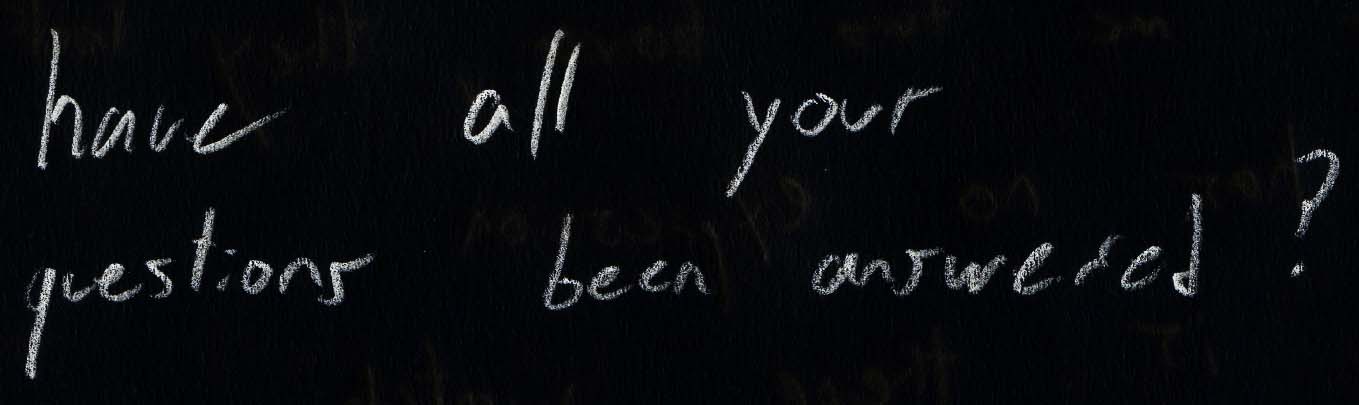 have all your
questions been answered?